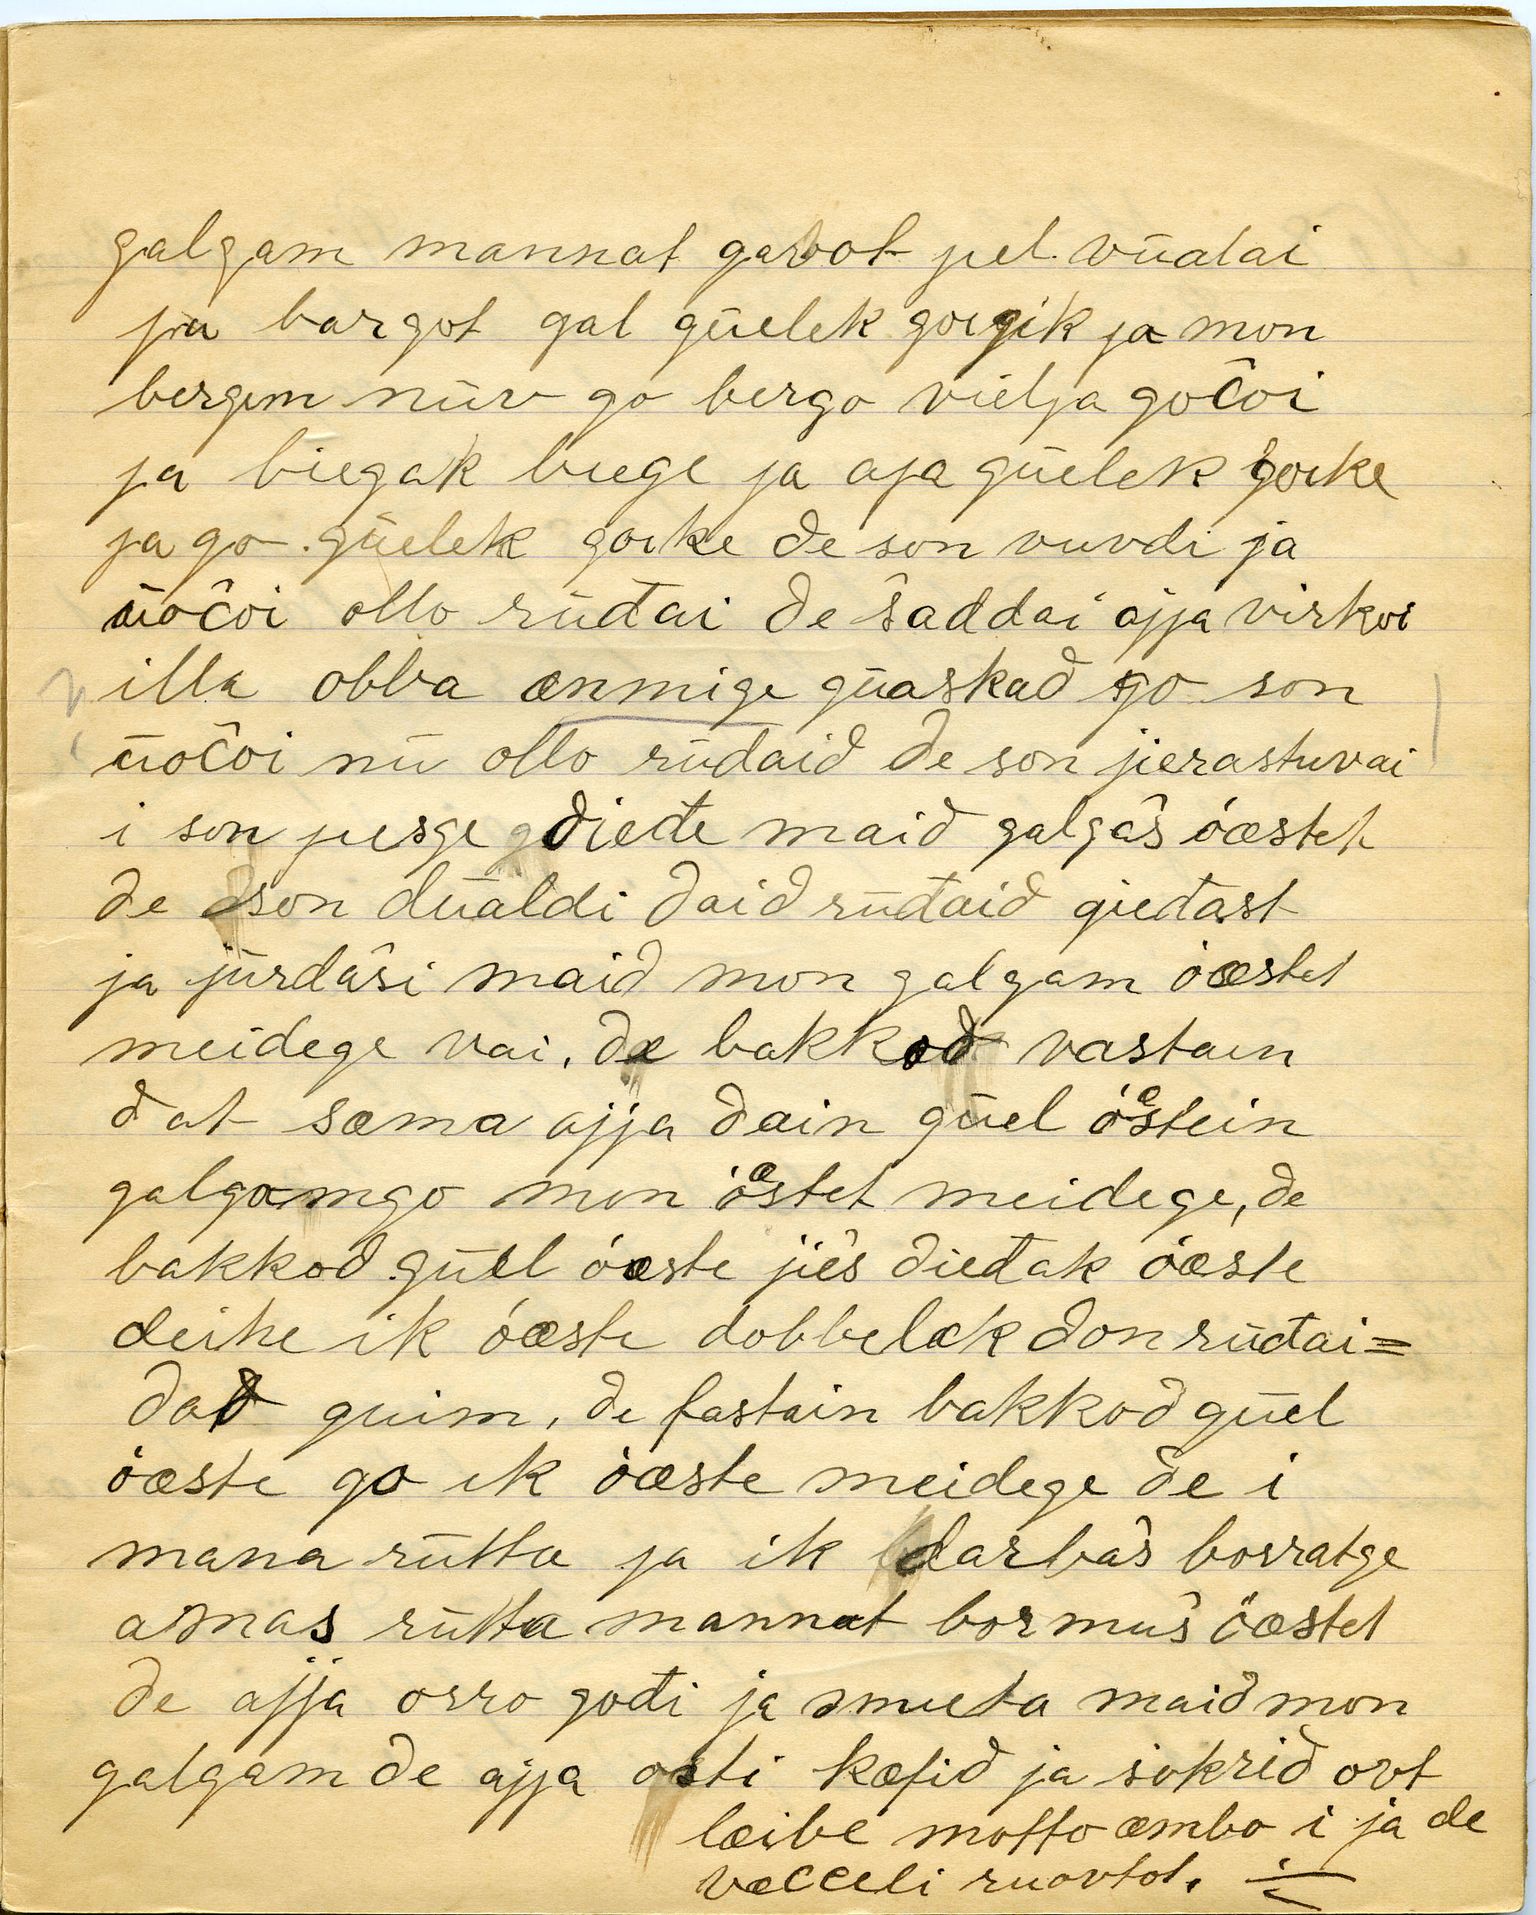 galgam mannat garvot jel. vūalai
ja bargot gal gūelek goigik ja mon
bergim nūv go bergo vielja gočoi
ja biegak biege ja aja gūelek goike
ja go gūelek goike de son vuvdi ja
ūočoi ollo rūđai de šaddai ajja virkoi
illa obba ænmige gūaskad go son
ūočoi nū ollo rūdaid de son jierastuvai
i son jiesge dieđe maid galgâš óæstet
de son dūaldi daid rūđaid gieđast
ja jūrdâši maid mon galgam óæstet
meidege vai, de bakkod vastain
dat sæma ajja dain gūel óæstein
galgamgo mon óæstet meidege, de
bakkod gūel óæste jiěs dieđak óæste
deihe ik óæste dobbelæk don rūđai=
dad guim, de fastain bakkod gūel
óæste go ik óæste meidege de i
mana rūtta ja ik darbâš borratge
amas rūtta mannat bormuš óæstet
de ajja orro gođi ja smieta maid mon
galgam de ajja osti kæfid ja sokrid ovt
læibe motto æmbo i ja de
væcceli ruovtot.